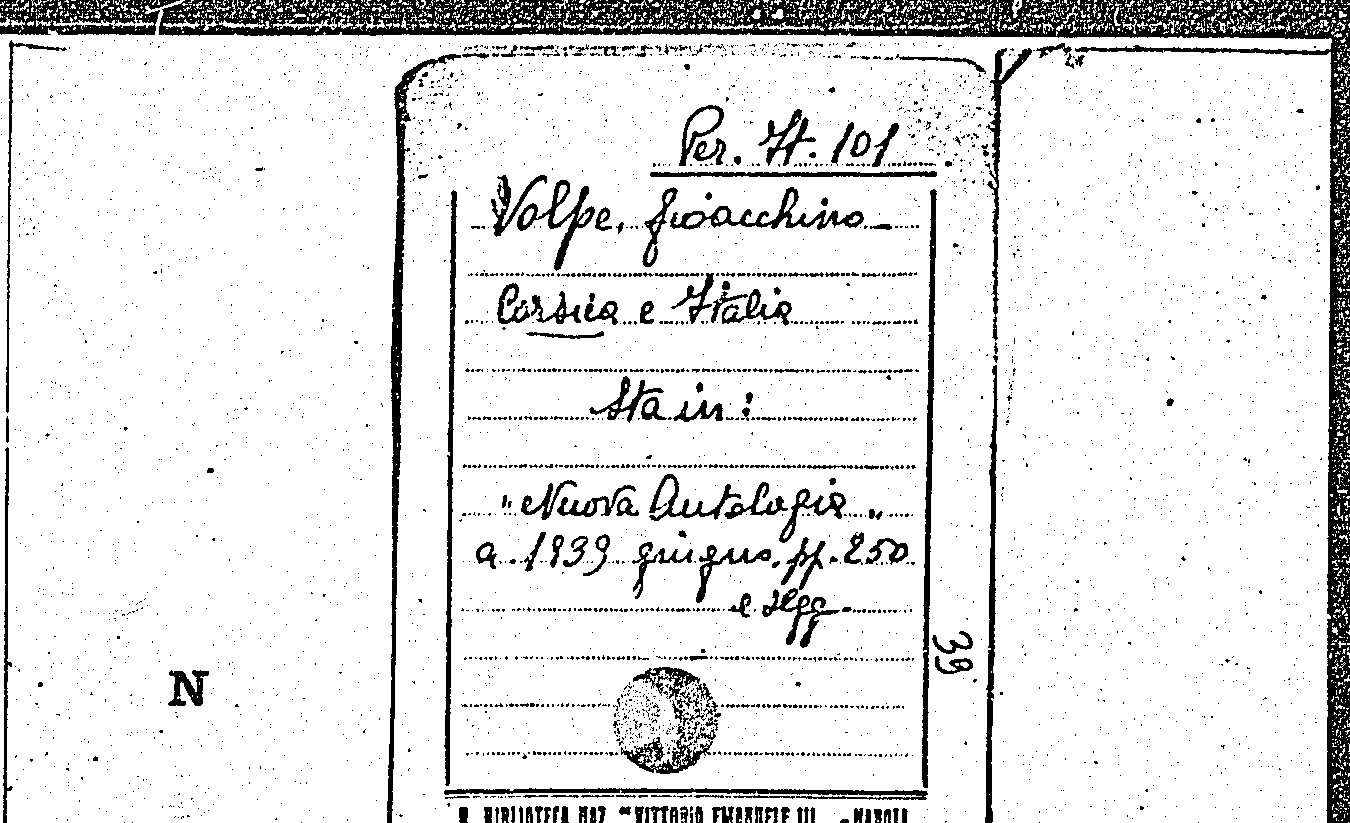 Per. It. 101
Volpe, Gioacchino
Corsica e Italia
Sta in:
"Nuova Antologia"
a. 1939 giugno, pp. 250
e segg.
39
N
R. BIBLIOTECA NAZ. "VITTORIO EMANUELE III" - NAPOLI